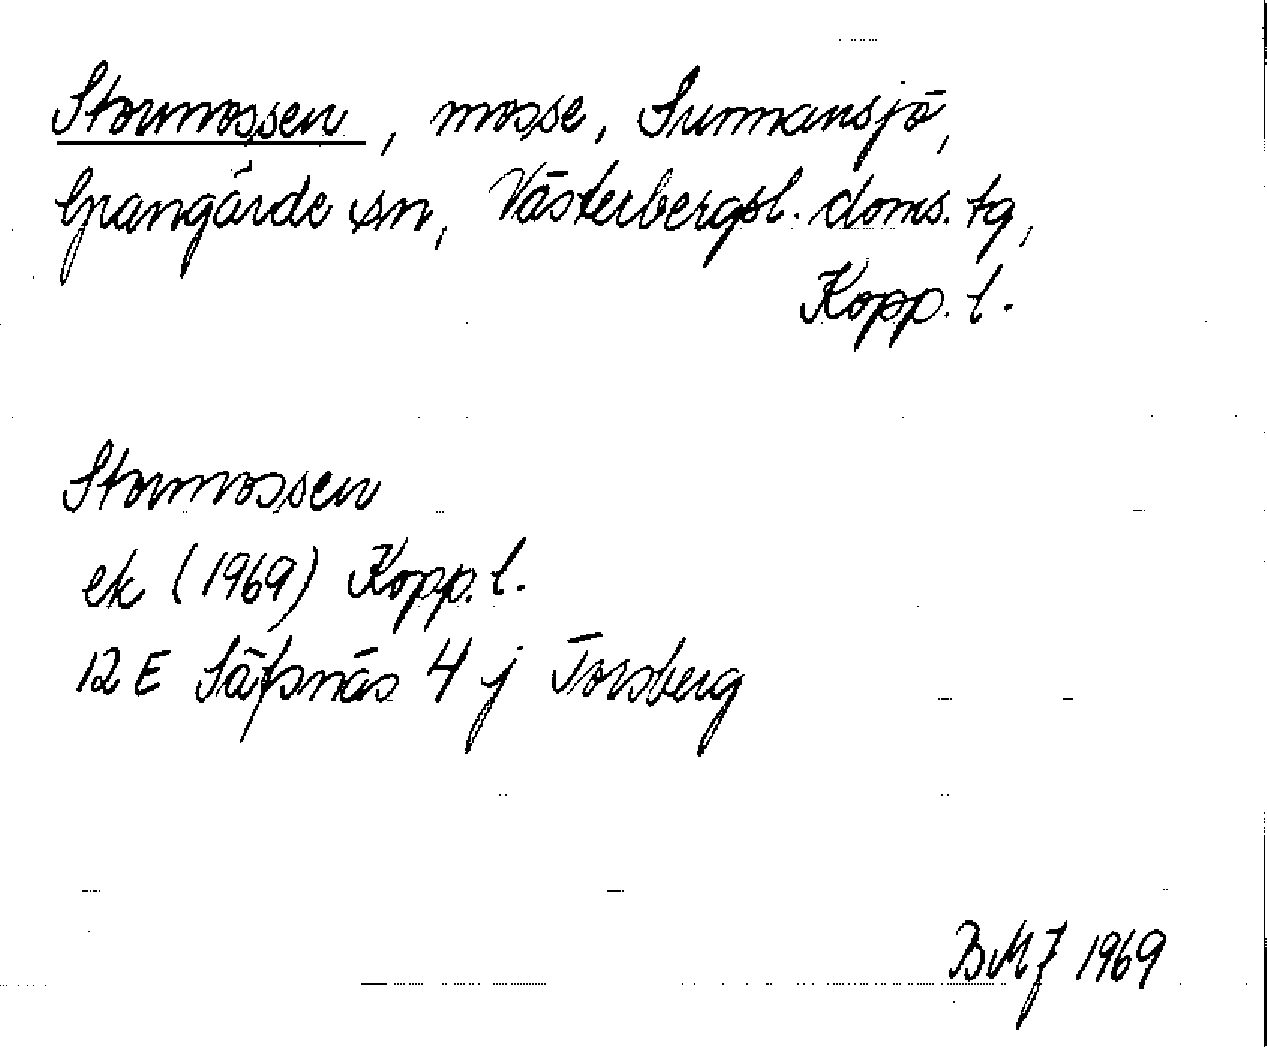 Stormossen, mosse, Sunnansjö,
Grangärde sn, Västerbergsl. doms. tg,
Kopp. l.
Stormossen
ek (1969) Kopp. l.
12 E Säfsnäs 4 j Torsberg
BMJ 1969